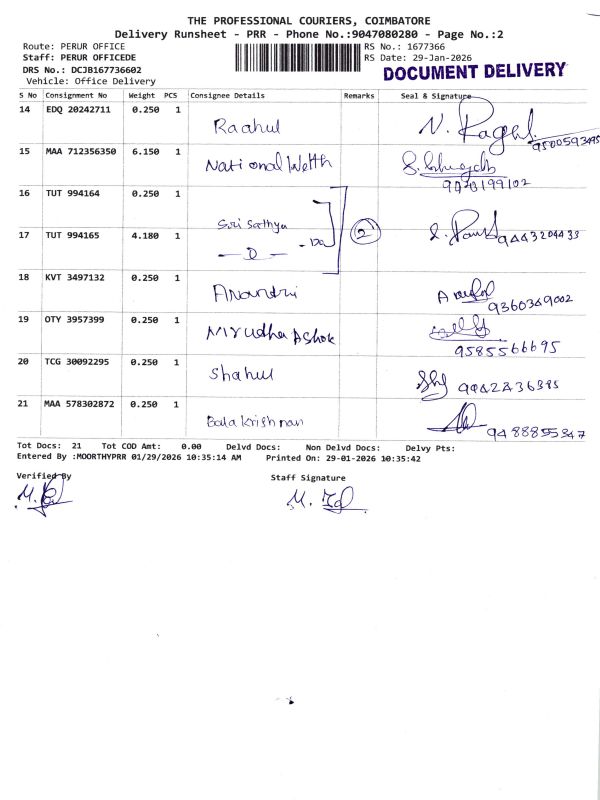 THE PROFESSIONAL COURIERS, COIMBATORE
Delivery Runsheet - PRR - Phone No.:9047080280 - Page No.:2
Route: PERUR OFFICE RS No.: 1677366
Staff: PERUR OFFICEDE RS Date: 29-Jan-2026
DRS No.: DCJB167736602 DOCUMENT DELIVERY
Vehicle: Office Delivery
S No Consignment No Weight PCS Consignee Details Remarks Seal & Signature
14 EDQ 20242711 0.250 1 Raahul N.
15 MAA 712356350 6.150 1 National
16 TUT 994164 0.250 1 Sri Sathya
17 TUT 994165 4.180 1 — D — - Do 2 9443204433
18 KVT 3497132 0.250 1 Anandhi 9360349002
19 OTY 3957399 0.250 1 Mrudha Ashok 9585566695
20 TCG 30092295 0.250 1 Shahul 9442436385
21 MAA 578302872 0.250 1 Balakrishnan 9488855347
Tot Docs: 21 Tot COD Amt: 0.00 Delvd Docs: Non Delvd Docs: Delvy Pts:
Entered By :MOORTHYPRR 01/29/2026 10:35:14 AM Printed On: 29-01-2026 10:35:42
Verified By Staff Signature